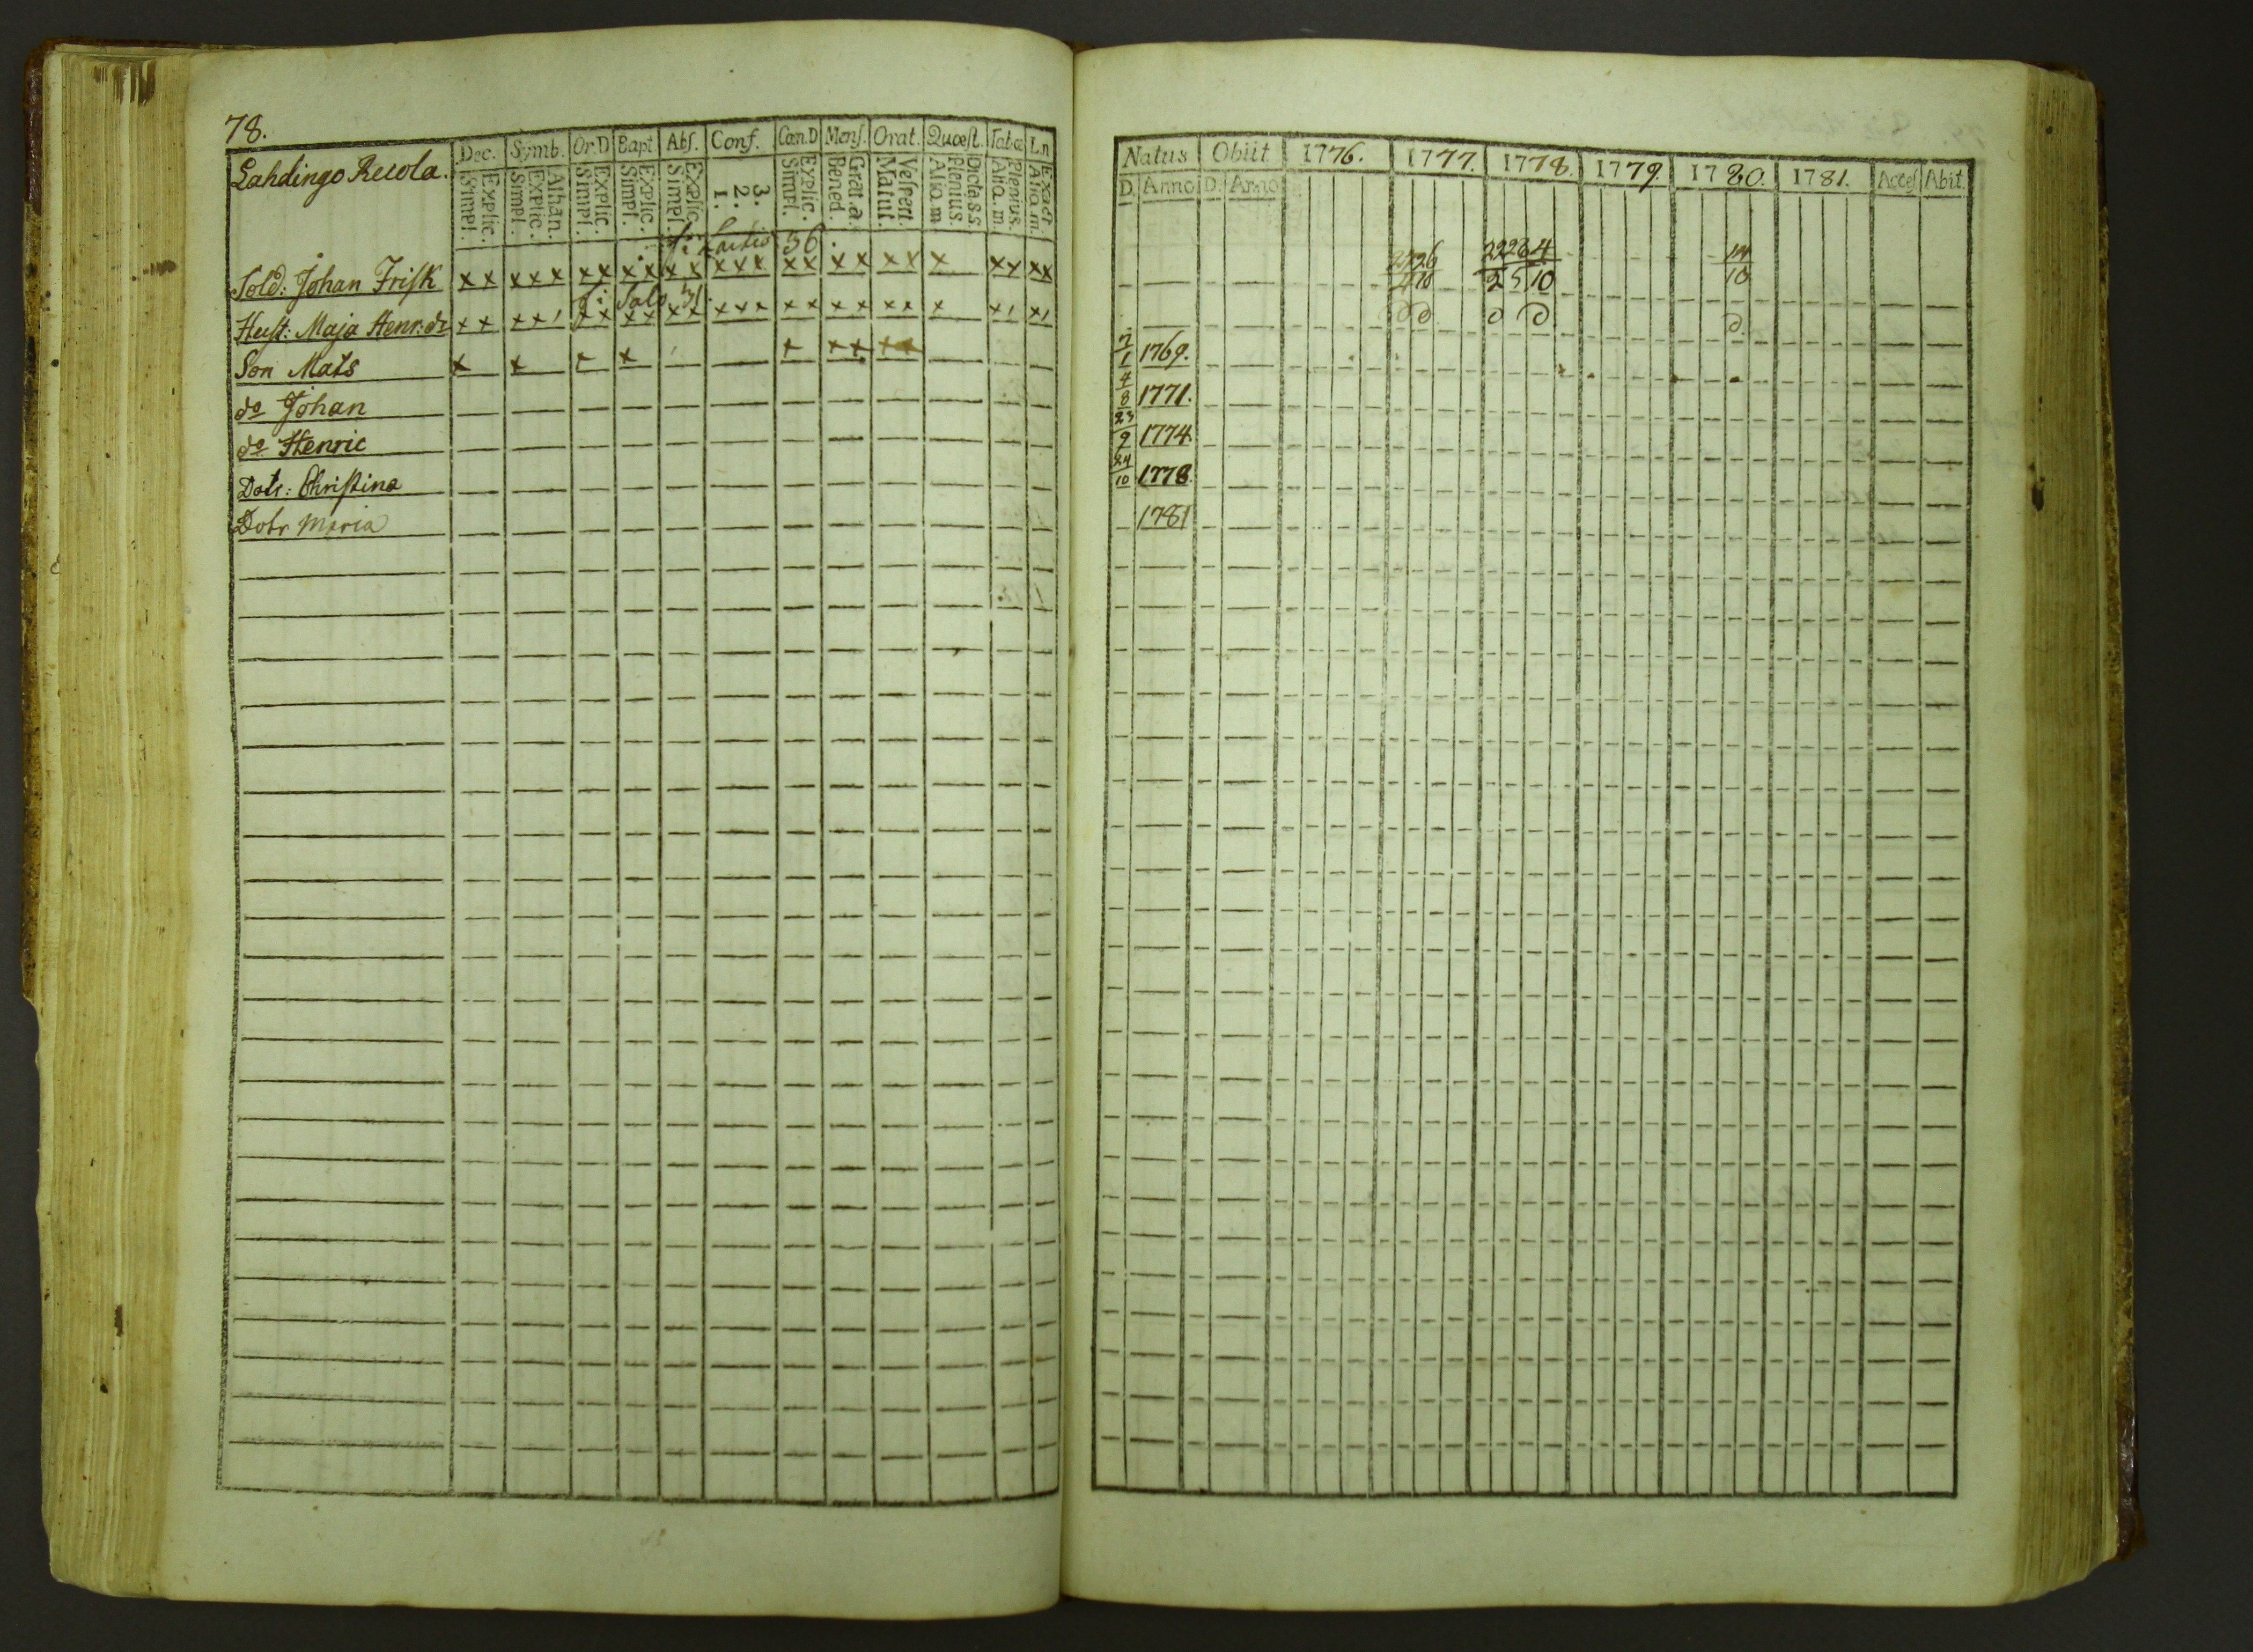 78.
Lahdingo Recola. Dec. Symb. Or.D Bapt. Abs. Conf. Cœn.D Mens. Orat. Quœst. Tab.œ L.n
Simpl. Explic. Simpl. Explic. Athan. Simpl. Explic. Simpl. Explic. Simpl. Explic. 1. 2. 3. Simpl. Explic. Bened. Grat. a. Matut. Vespert. Aliq. m. Plenius. Dicta s s Aliq. m. Plenius. Aliq. m. Exact
56
Sold: Johan Frisk x x x x x x x x x x x x x x x x x x x x x x x x x
f: Salo 31
Hust: Maja Henr:dr x x x x / x x x x x x x x x x x x x x x x x / x /
Son Mats x x x x / x x x x x
do Johan
do Henric
Dotr: Christina
Dotr Maria
Natus Obiit 1776. 1777. 1778. 1779. 1780. 1781. Acces Abit.
D. Anno D. Anno
14
2 5 10 10
7
1 1769.
4
8 1771.
23
9 1774
24
10 1778.
1781